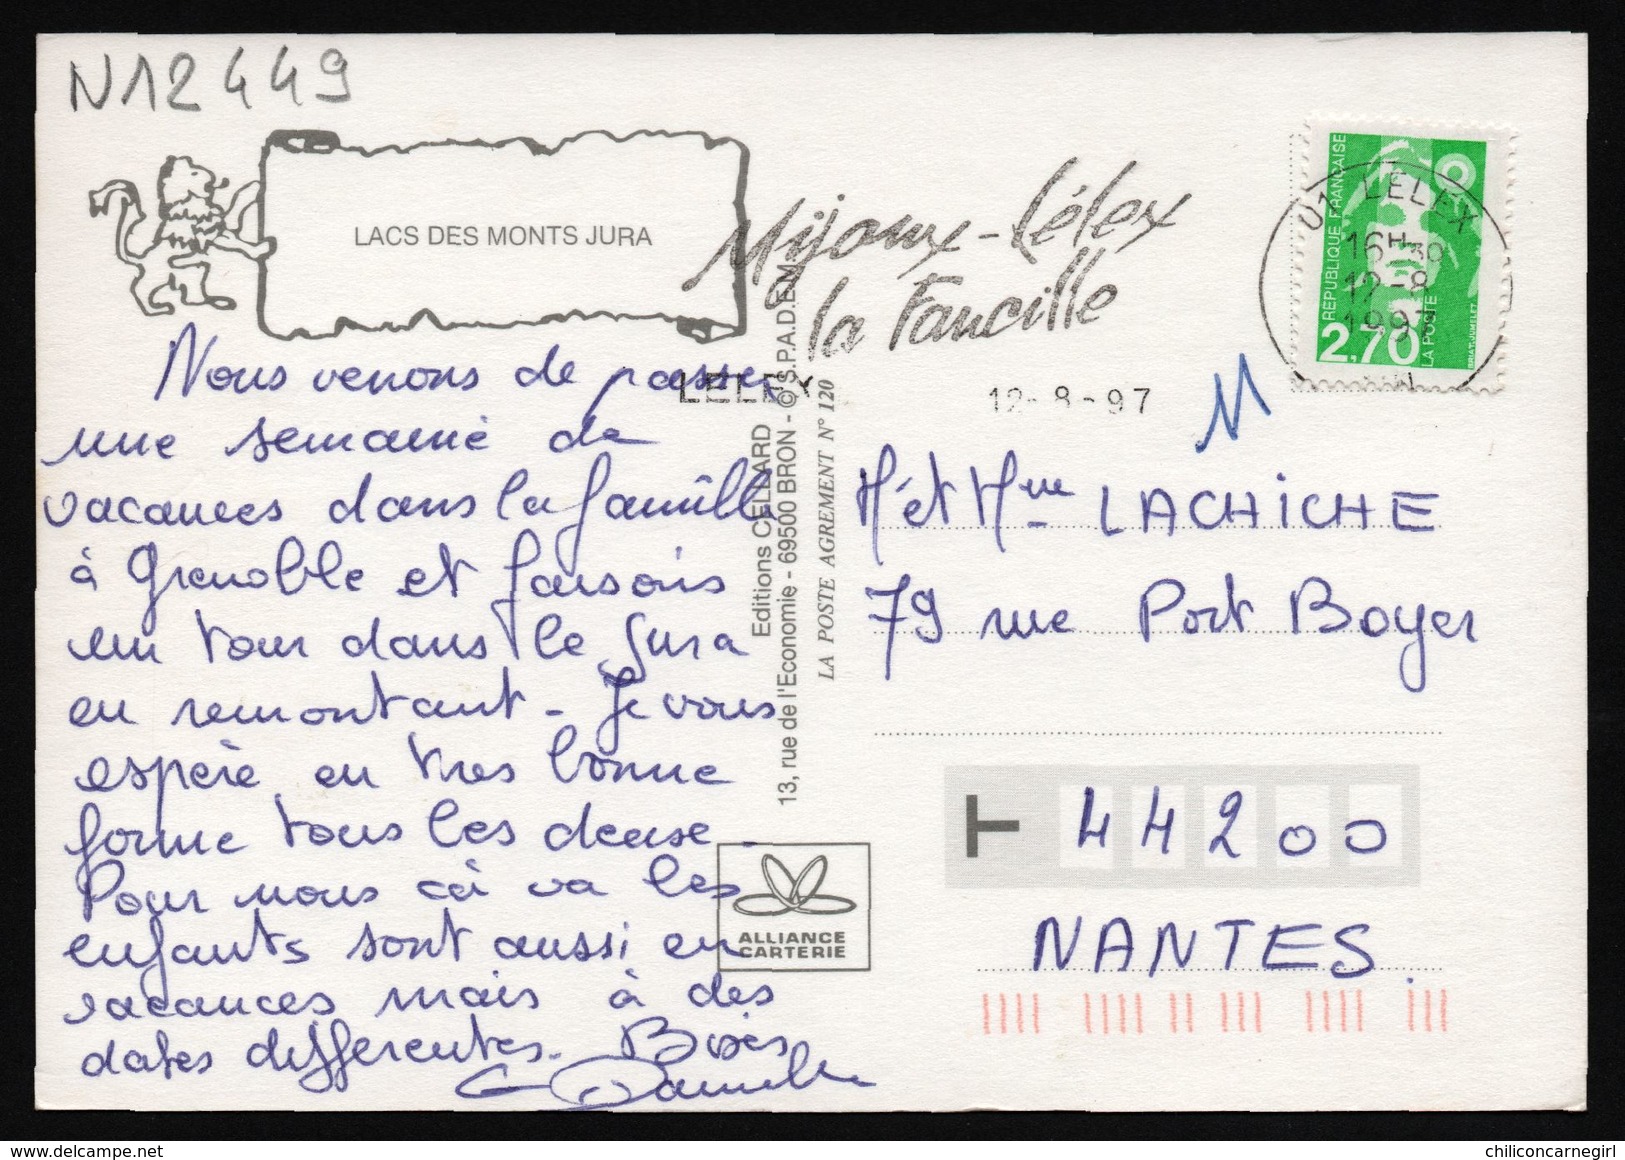 N12449
LACS DES MONTS JURA
Mijoux-Lélex
la Faucille
RÉPUBLIQUE FRANÇAISE
2,70
LA POSTE
BRIAT-JUMELET
01 LELEX
16H30
12-8
1997
AIN
LELEX
12-8-97
Nous venons de passer
une semaine de
vacances dans la famille
à Grenoble et faisons
un tour dans le Jura
en remontant - Je vous
espère en très bonne
forme tous les deux.
Pour nous ça va les
enfants sont aussi en
vacances mais à des
dates différentes. Bises
Editions CELLARD
13, rue de l'Economie - 69500 BRON - © S.P.A.D.E.M.
LA POSTE AGREMENT N° 120
M et Mme LACHICHE
79 rue Port Boyer
44200
NANTES.
ALLIANCE
CARTERIE
www.delcampe.net
chiliconcarnegirl